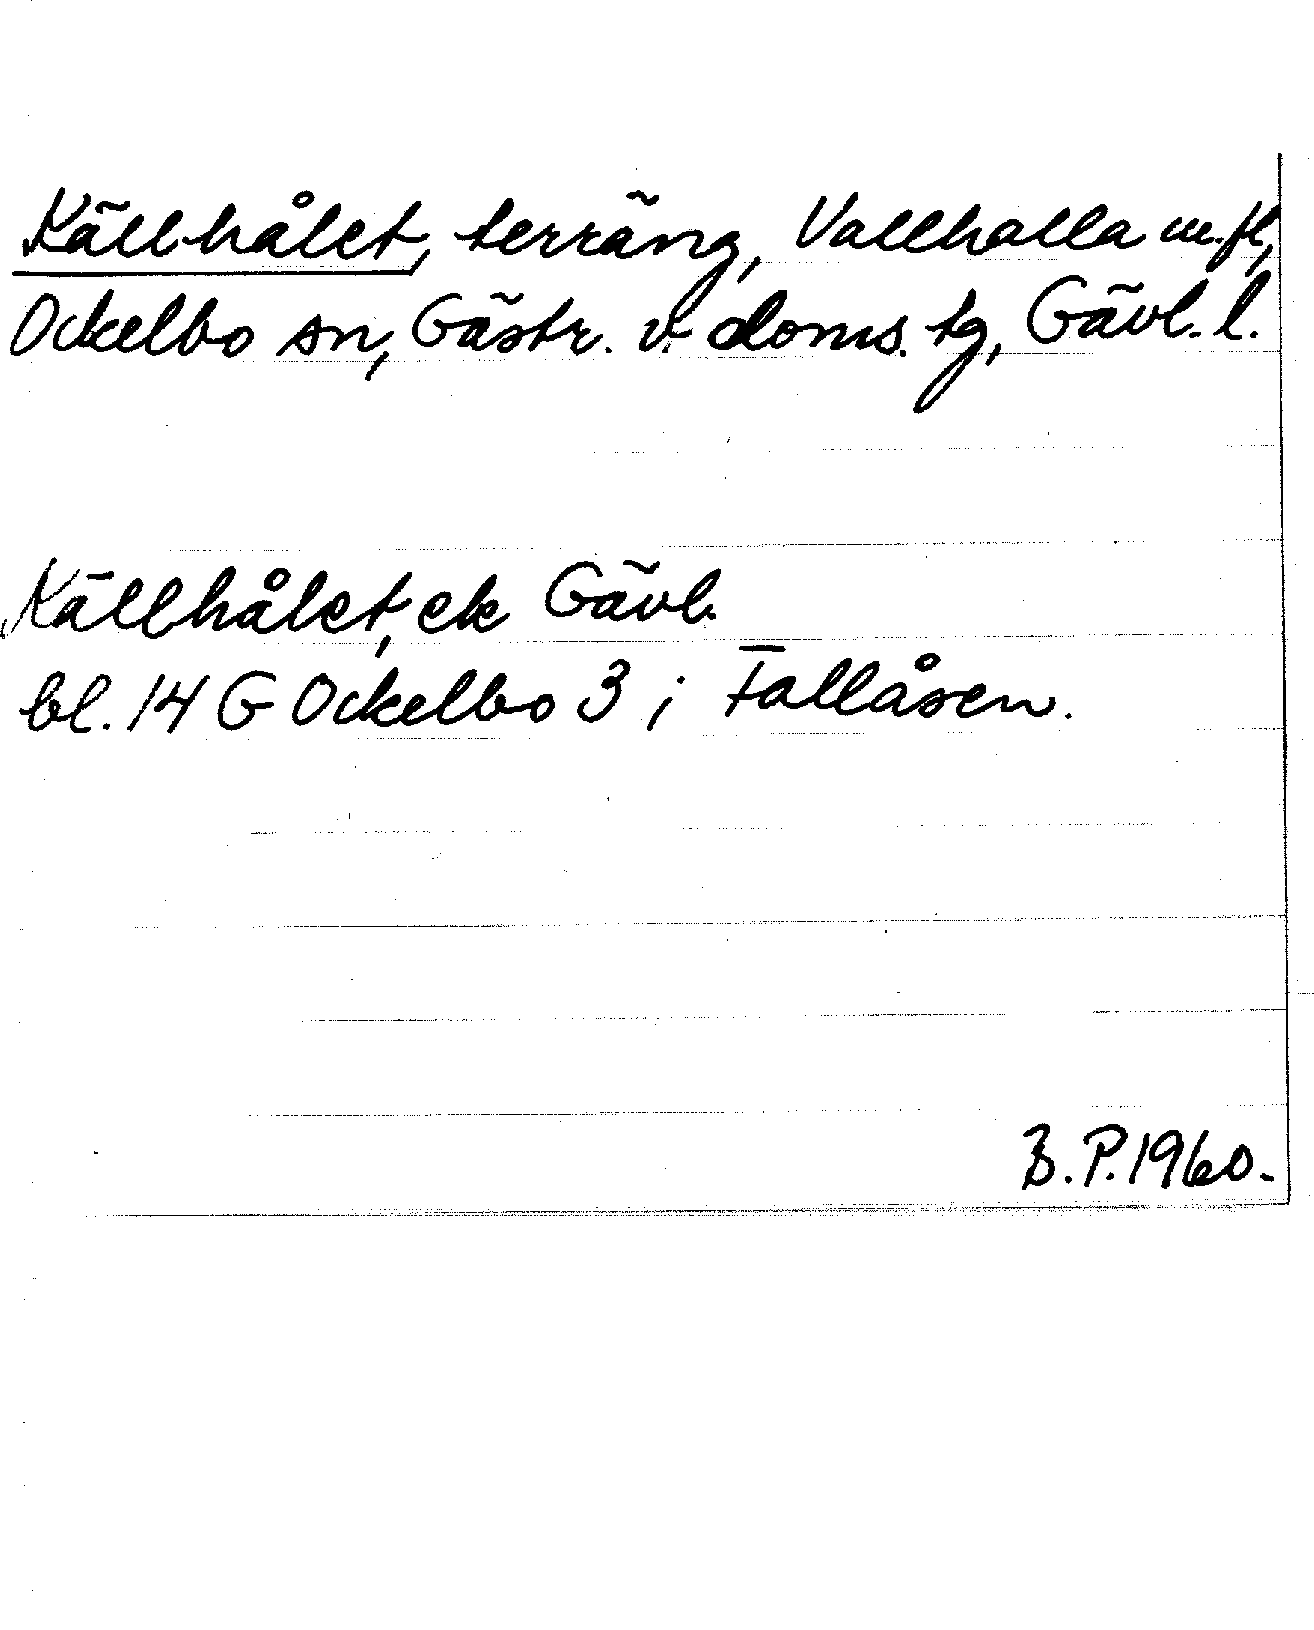 Källhålet, terräng, Vallhalla m.fl,
Ockelbo sn, Gästr. v. doms. tg, Gävl. l.
Källhålet, ek Gävl.
bl. 14 G Ockelbo 3 i Fallåsen.
B.P. 1960.